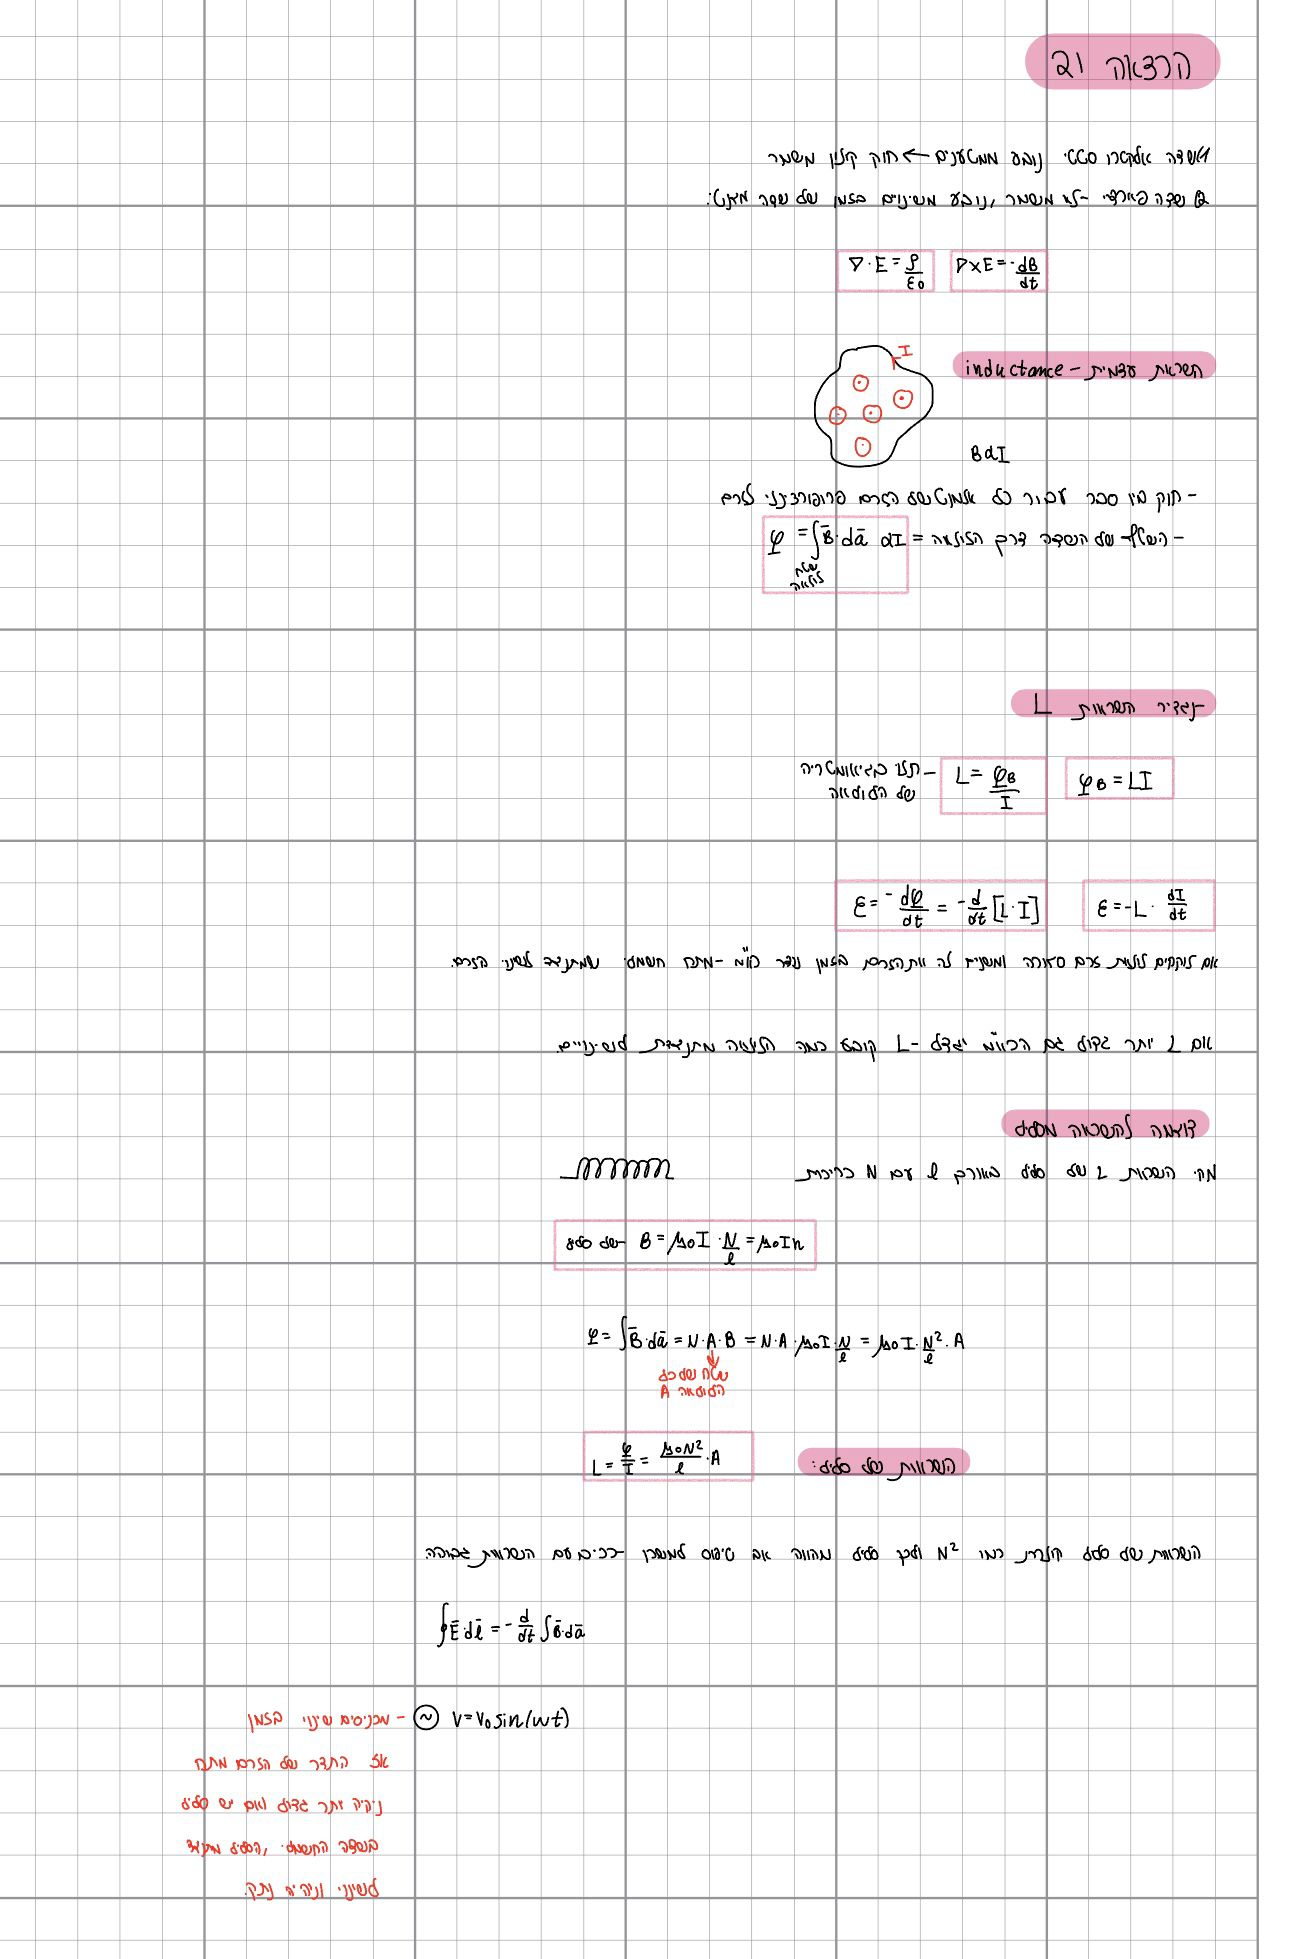 הרצאה 21
1) שדה אלקטרו סטטי נובע ממטענים ← חוק קולון משמר
2) שדה פארדי - לא משמר, נובע משינויים בזמן של שדה מגנטי.
∇·E = ρ/ε0   ∇×E = -dB/dt
השראות עצמית - inductance
I
B α I
- חוק ביו סבר עבור כל אלמנט של הזרם פרופורציוני לזרם
- השטף של השדה דרך הלולאה = φ = ∫B̄·dā α I
שטח
לולאה
נגדיר השראות L
φB = LI   L = φB/I - תלוי בגיאומטריה
של הלולאה
ε = -L · dI/dt   ε = -dφ/dt = -d/dt [L·I]
אם לוקחים לולאת זרם סגורה ומשנים לה את הזרם בזמן נוצר כא"מ - מתח חשמלי שמתנגד לשינוי הזרם.
אם L יותר גדול גם הכא"מ יגדל - L קובע כמה הלולאה מתנגדת לשינויים.
דוגמה להשראה מסליל
מהי השראות L של סליל באורך l עם N כריכות
B = μ0I · N/l = μ0In - של סליל
φ = ∫B̄·dā = N·A·B = N·A·μ0I·N/l = μ0I·N²/l·A
שטח של כל
הלולאה A
השראות של סליל:
L = φ/I = μ0N²/l · A
השראות של סליל הולכת כמו N² ולכן סליל מהווה אב טיפוס למשרן - רכיב עם השראות גבוהה.
∮Ē·dl̄ = -d/dt ∫B̄·dā
~ V = V0 sin(ωt)
- מכניסים שינוי בזמן
אז התדר של הזרם מתח
נהיה יותר גדול ואם יש סליל
בשדה החשמלי, הסליל מתנגד
לשינוי ונהיה נתק.